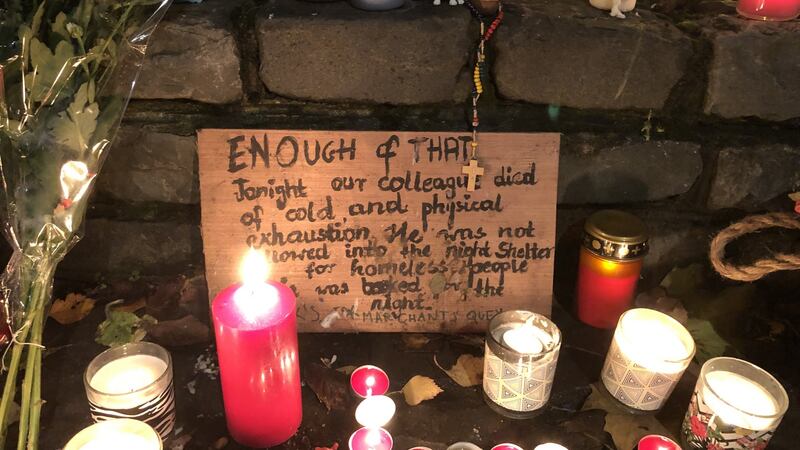 ENOUGH of THAT
Tonight our colleague died
of cold and physical
exhaustion. He was not
allowed into the night shelter
for homeless people
was booked for the
night.
MARCHANTS QUEY